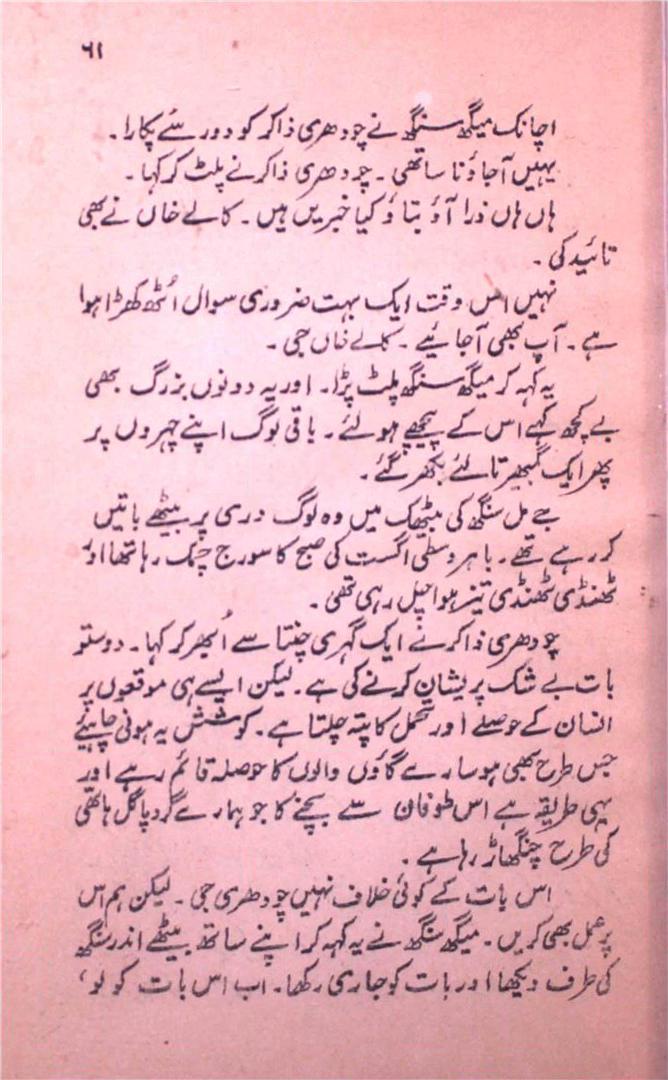 ۶۱
اچانک میگھ سنگھ نے چودھری ذاکر کو دور سے پکارا۔
یہیں آجاؤ نا ساتھی۔ چودھری ذاکر نے پلٹ کر کہا۔
ہاں ہاں ذرا آؤ بتاؤ کیا خبریں ہیں۔ کالے خاں نے بھی
تائید کی۔
نہیں اس وقت ایک بہت ضروری سوال اُٹھ کھڑا ہوا
ہے۔ آپ بھی آجائیے۔ کالے خاں جی۔
یہ کہہ کر میگھ سنگھ پلٹ پڑا۔ اور یہ دونوں بزرگ بھی
بے کچھ کہے اس کے پیچھے ہولئے۔ باقی لوگ اپنے چہروں پر
پھر ایک گمبھیرتا لئے بکھر گئے۔
جے مل سنگھ کی بیٹھک میں وہ لوگ دری پر بیٹھے باتیں
کر رہے تھے۔ باہر وسطی اگست کی صبح کا سورج چمک رہا تھا اور
ٹھنڈی ٹھنڈی تیز ہوا چل رہی تھی۔
چودھری ذاکر نے ایک گہری چنتا سے اُبھر کر کہا۔ دوستو
بات بے شک پریشان کرنے کی ہے۔ لیکن ایسے ہی موقعوں پر
انسان کے حوصلے اور تحمل کا پتہ چلتا ہے۔ کوشش یہ ہونی چاہیئے
جس طرح بھی ہو سارے گاؤں والوں کا حوصلہ قائم رہے اور
یہی طریقہ ہے اس طوفان سے بچنے کا جو ہمارے گرد پاگل ہاتھی
کی طرح چنگھاڑ رہا ہے۔
اس بات کے کوئی خلاف نہیں چودھری جی۔ لیکن ہم اس
پر عمل بھی کریں۔ میگھ سنگھ نے یہ کہہ کر اپنے ساتھ بیٹھے اندر سنگھ
کی طرف دیکھا اور بات کو جاری رکھا۔ اب اس بات کو لو،